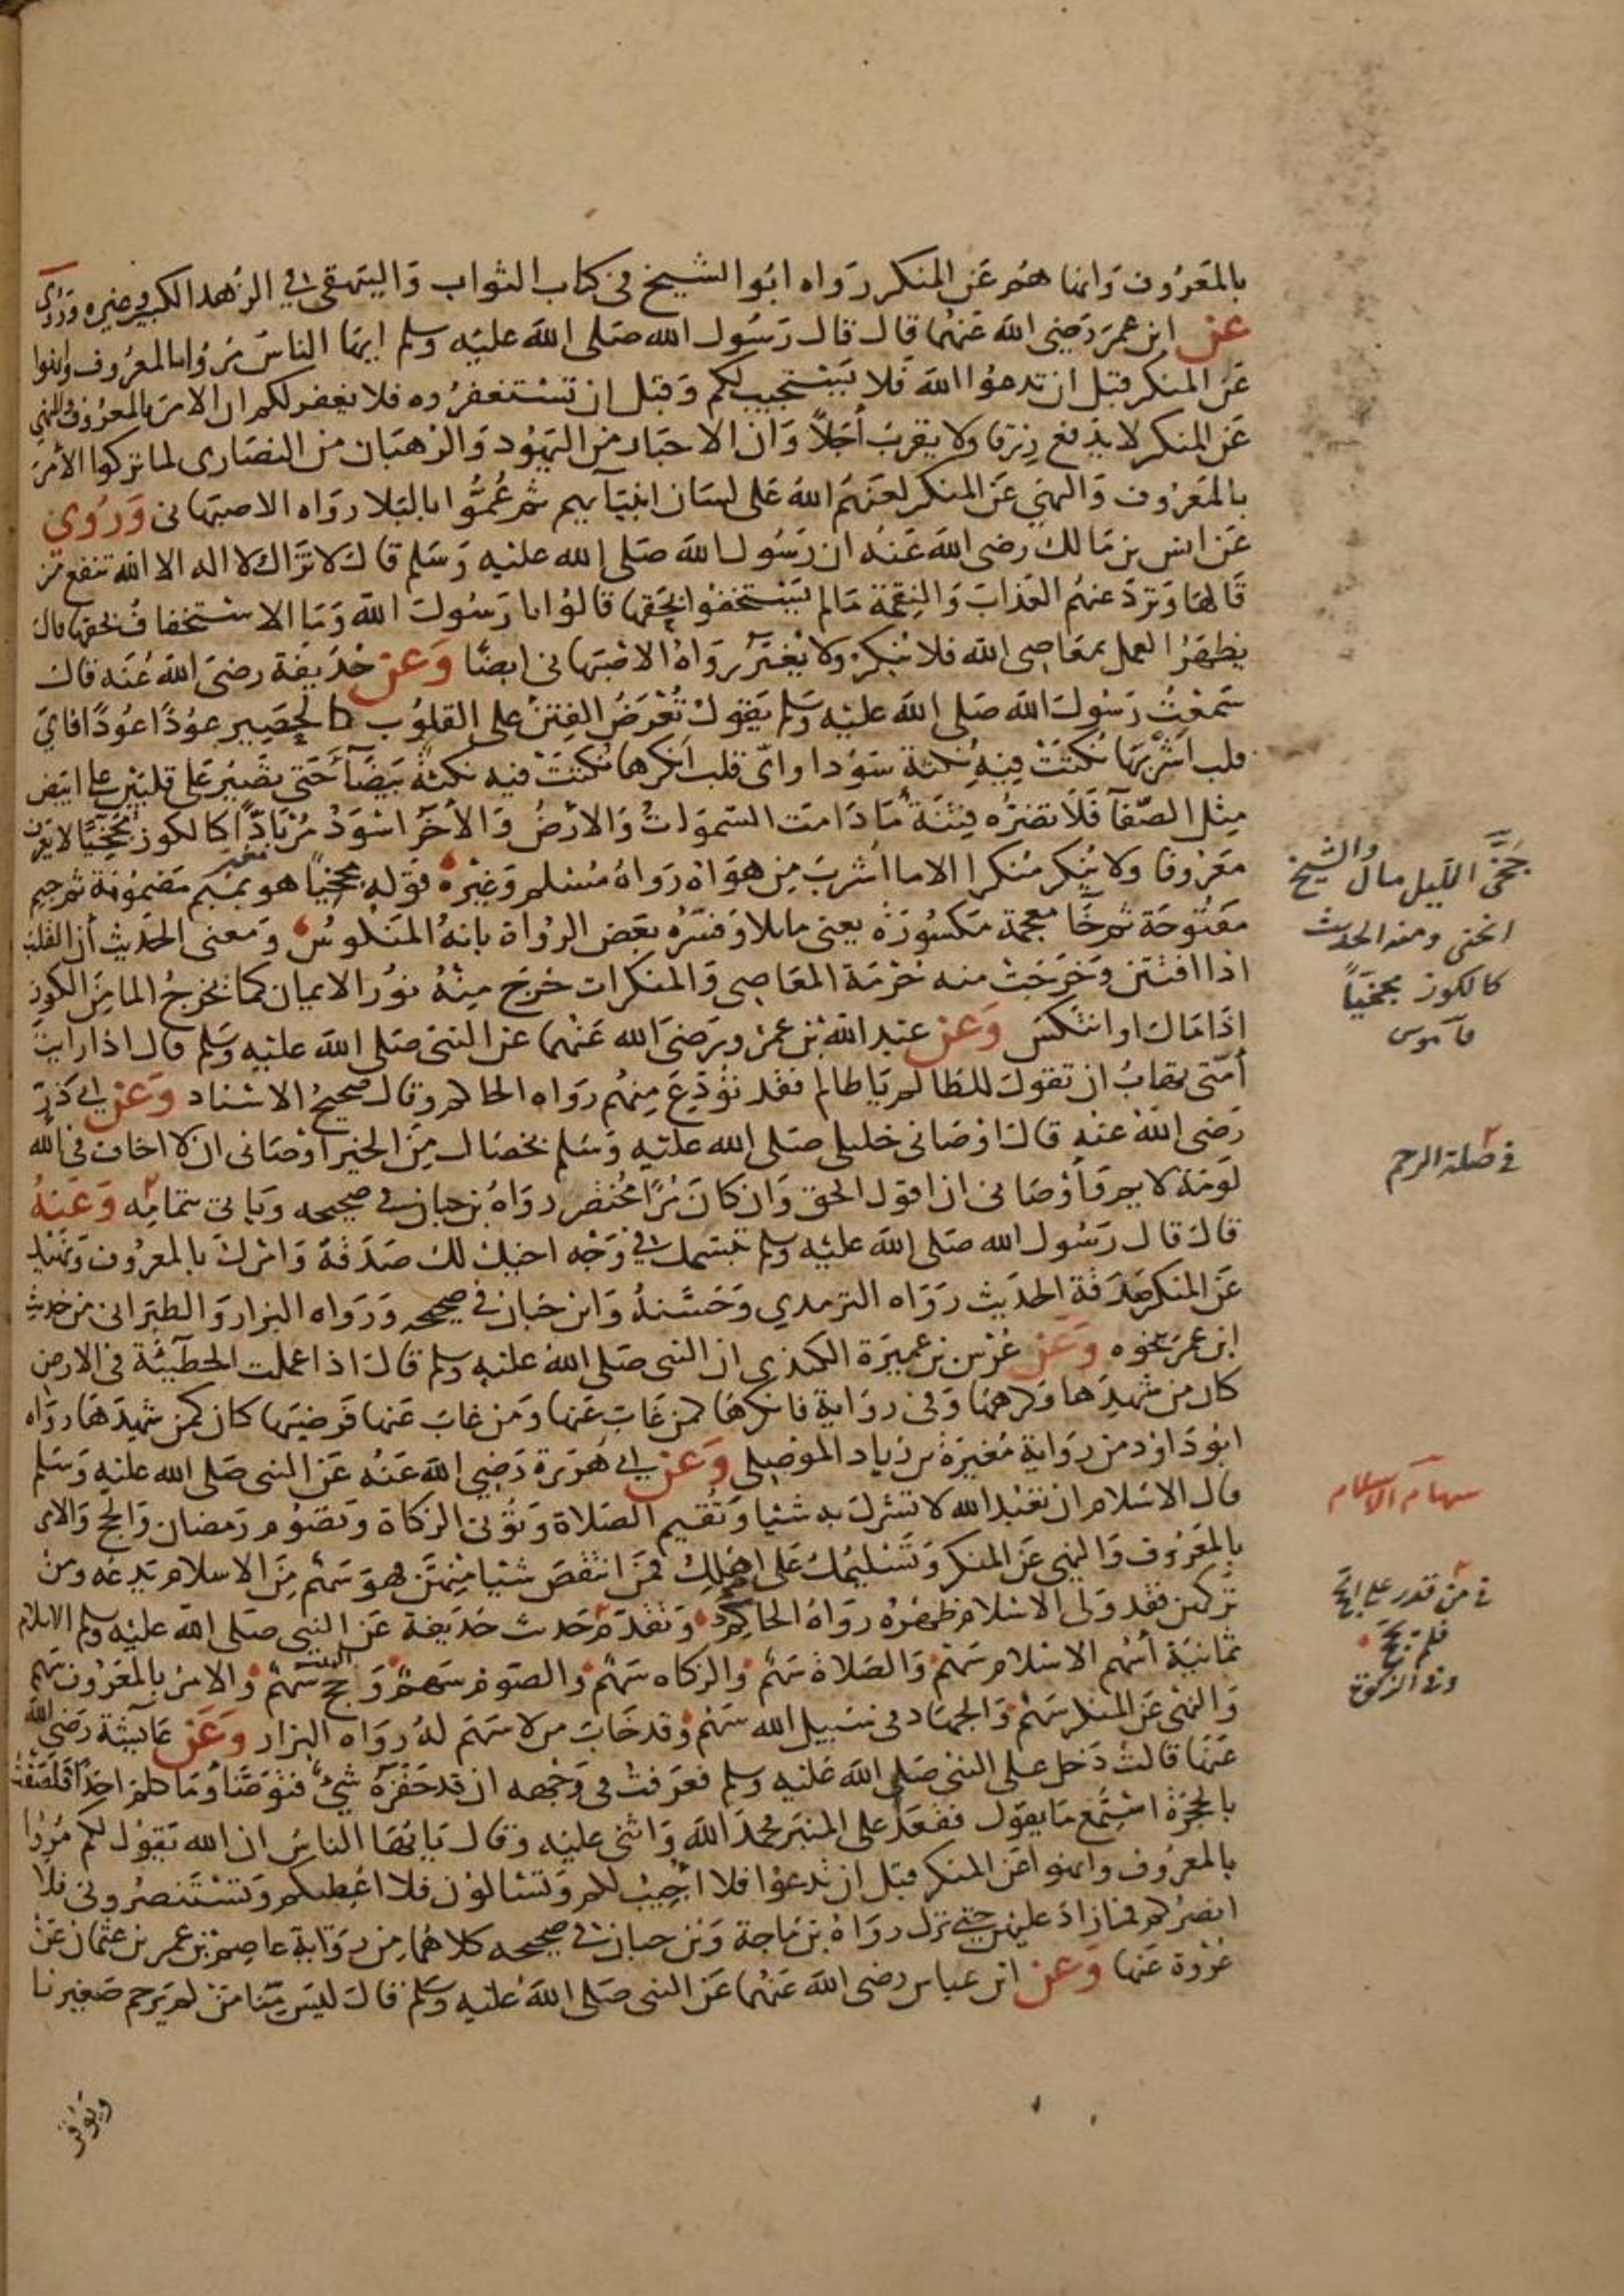 بالمعروف وانها هم عن المنكر رواه ابو الشيخ في كتاب الثواب والبيهقي في الزهد الكبير وغيره وروي
عن ابن عمر رضي الله عنهما قال قال رسول الله صلى الله عليه وسلم ايها الناس مروا بالمعروف وانهوا
عن المنكر قبل ان تدعوا الله فلا يستجيب لكم وقبل ان تستغفروه فلا يغفر لكم ان الامر بالمعروف والنهي
عن المنكر لا يدفع رزقا ولا يقرب أجلاً وان الاحبار من اليهود والرهبان من النصارى لما تركوا الأمر
بالمعروف والنهي عن المنكر لعنهم الله على لسان انبيآيهم ثم عُمُّوا بالبلا رواه الاصبهاني وَرُوي
عن انس بن مالك رضي الله عنه ان رسول الله صلى الله عليه وسلم قال لا تزال لا اله الا الله تنفع من
قالها وترد عنهم العذاب والنقمة ما لم يستخفوا بحقها قالوا يا رسول الله وما الاستخفاف بحقها قال
يظهر العمل بمعاصي الله فلا ينكر ولا يغير رواه الاصبهاني ايضًا وَعن حذيفة رضي الله عنه قال
سمعت رسول الله صلى الله عليه وسلم يقول تُعْرَض الفتن على القلوب كالحصير عودًا عودًا فاي
قلب اشربها نكتت فيه نكتة سودا واي قلب انكرها نكتت فيه نكتة بيضآ حتى تصير على قلبين على ابيض
مثل الصفآ فلا تضره فتنة ما دامت السموات والارض والأخر اسود مُرْبَادًّا كالكوز مجخيًا لا يعرف
معروفا ولا ينكر منكرا الا ما اشرب من هواه رواه مسلم وغيره قوله مجخيًا هو بميم مضمومة ثم جيم
مفتوحة ثم خآ معجمة مكسورة يعني مايلا وفسره بعض الرواة بانه المنكوس ومعنى الحديث أن القلب
اذا افتتن وخرجت منه حرمة المعاصي والمنكرات خرج منه نور الايمان كما يخرج الما من الكوز
اذا مال او انتكس وَعن عبد الله بن عمرو رضي الله عنهما عن النبي صلى الله عليه وسلم قال اذا رايت
أمتي تهاب ان تقول للظالم يا ظالم فقد تُوُدِّعَ منهم رواه الحاكم وقال صحيح الاسناد وَعن ابي ذر
رضي الله عنه قال اوصاني خليلي صلى الله عليه وسلم بخصال من الخير اوصاني ان لا اخاف في الله
لومة لايم واوصاني ان اقول الحق وان كان مُرًّا مختصر رواه بن حبان في صحيحه وياتي بتمامه وَعَنهُ
قال قال رسول الله صلى الله عليه وسلم تبسمك في وجه اخيك لك صدقة وامرك بالمعروف ونهيك
عن المنكر صدقة الحديث رواه الترمذي وحسنه وابن حبان في صحيحه ورواه البزار والطبراني من حديث
ابن عمر بنحوه وَعَن عُرْس بن عميرة الكندي ان النبي صلى الله عليه وسلم قال اذا عملت الخطيئة في الارض
كان من شهدها وكرهها وفي رواية فانكرها كمن غاب عنها ومن غاب عنها فرضيها كان كمن شهدها رواه
ابو داود من رواية مغيرة بن زياد الموصلي وَعن ابي هريرة رضي الله عنه عن النبي صلى الله عليه وسلم
قال الاسلام ان تعبد الله لا تشرك به شئيا وتقيم الصلاة وتؤتي الزكاة وتصوم رمضان والحج والامر
بالمعروف والنهي عن المنكر وتسليمك على اهلك فمن انتقص شئيا منهن فهو سهم من الاسلام يدعه ومن
تركهن فقد ولى الاسلام ظهره رواه الحاكم وتقدم حديث حذيفة عن النبي صلى الله عليه وسلم الاسلام
ثمانية أسهم الاسلام سهم والصلاة سهم والزكاه سهم والصوم سهم وحج البيت سهم والامر بالمعروف سهم
والنهي عن المنكر سهم والجهاد في سبيل الله سهم وقد خاب من لا سهم له رواه البزار وَعَن عايشة رضي الله
عنها قالت دخل علي النبي صلى الله عليه وسلم فعرفت في وجهه ان قد حَفَزَهُ شئ فتوضأ وما كلم احدا فلصقت
بالحجرة استمع ما يقول فقعد على المنبر فحمد الله واثنى عليه وقال يا ايها الناس ان الله يقول لكم مُرُوا
بالمعروف وانهوا عن المنكر قبل ان تدعوا فلا أجيب لكم وتسئالون فلا اعطيكم وتستنصروني فلا
انصركم فما زاد عليهن حتى نزل رواه بن ماجة وبن حبان في صحيحه كلاهما من رواية عاصم بن عمر بن عثمان عن
عروة عنها وَعن ابن عباس رضي الله عنهما عن النبي صلى الله عليه وسلم قال ليس منا من لم يرحم صغيرنا
ويوقر
جَخَّى الليل مال والشيخ
انحنى ومنه الحديث
كالكوز مجخيًاً
قاموس
في صلة الرحم
سهام الاسلام
في من قدر على الحج
فلم يحج
وفي الزكوة